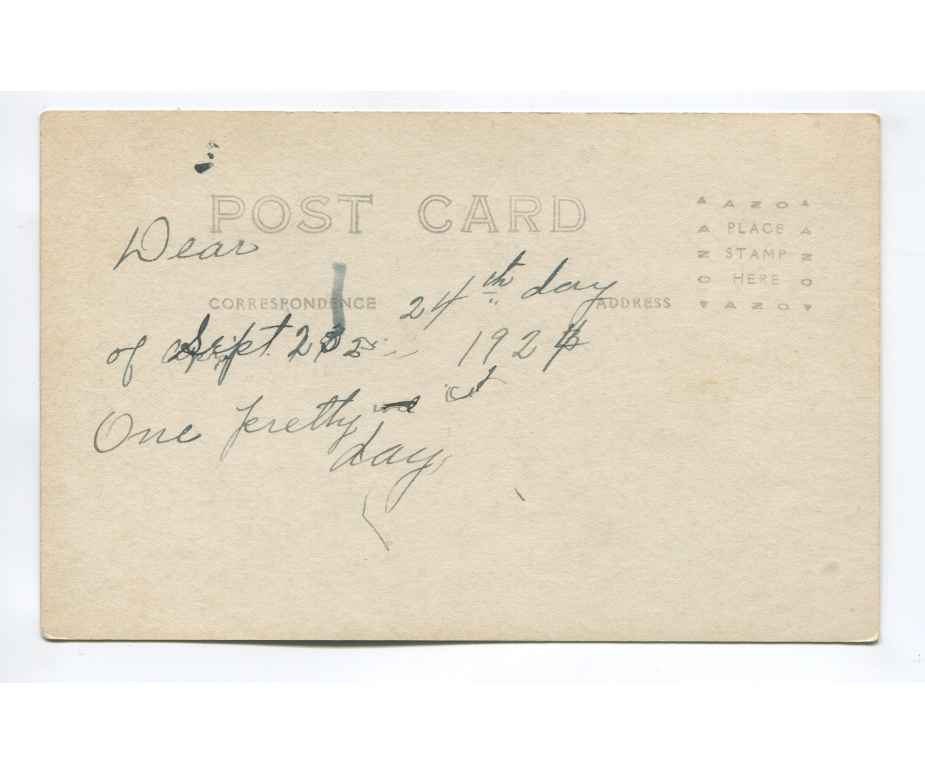 POST CARD
AZO
PLACE
STAMP
HERE
AZO
Dear
CORRESPONDENCE
ADDRESS
24th day
of Sept. 1924
One pretty
day